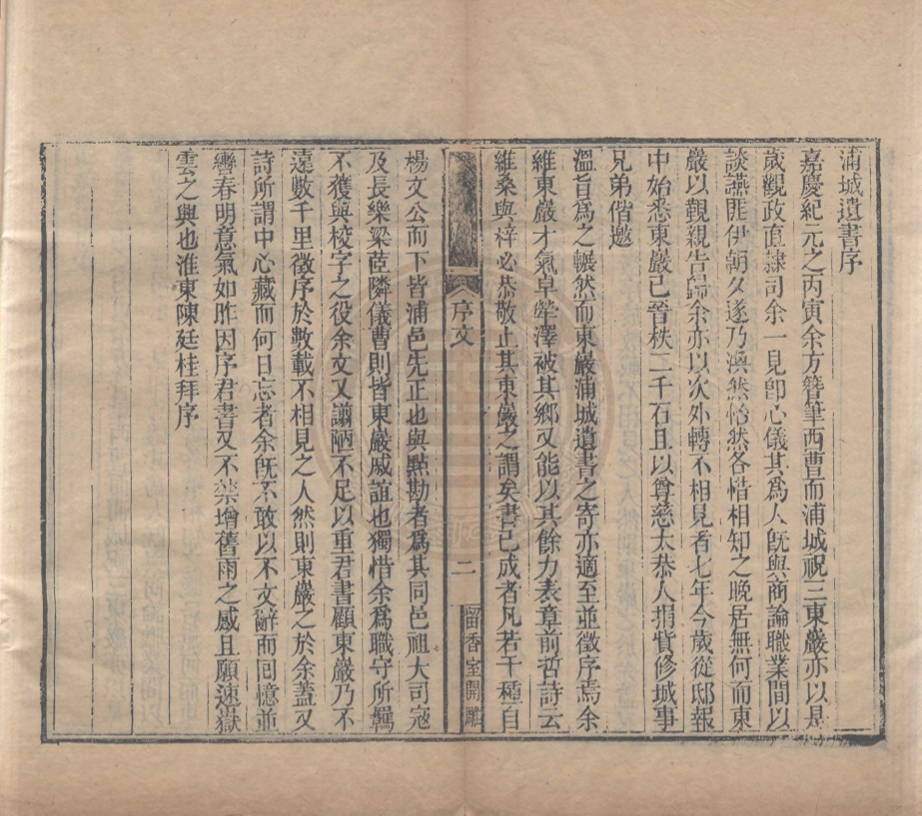 浦城遺書序
嘉慶紀元之丙寅余方簪筆西曹而浦城祝三東巖亦以是
歲觀政直隷司余一見卽心儀其爲人旣與商論職業間以
談讌匪伊朝夕遂乃渙然怡然各惜相知之晚居無何而東
巖以覲親告歸余亦以次外轉不相見者七年今歲從邸報
中始悉東巖已晉秩二千石且以尊慈太恭人捐貲修城事
兄弟偕邀
溫旨爲之冁然而東巖浦城遺書之寄亦適至並徵序焉余
維東巖才氣卓犖澤被其鄉又能以其餘力表章前哲詩云
維桑與梓必恭敬止其東巖之謂矣書已成者凡若干種自
序文
二
留香室開雕
楊文公而下皆浦邑先正也與點勘者爲其同邑祖大司寇
及長樂梁茝隣儀曹則皆東巖戚誼也獨惜余爲職守所羈
不獲與校字之役余文又譾陋不足以重君書顧東巖乃不
遠數千里徵序於數載不相見之人然則東巖之於余蓋又
詩所謂中心藏而何日忘者余旣不敢以不文辭而回憶並
轡春明意氣如昨因序君書又不禁增舊雨之感且願速嶽
雲之興也淮東陳廷桂拜序